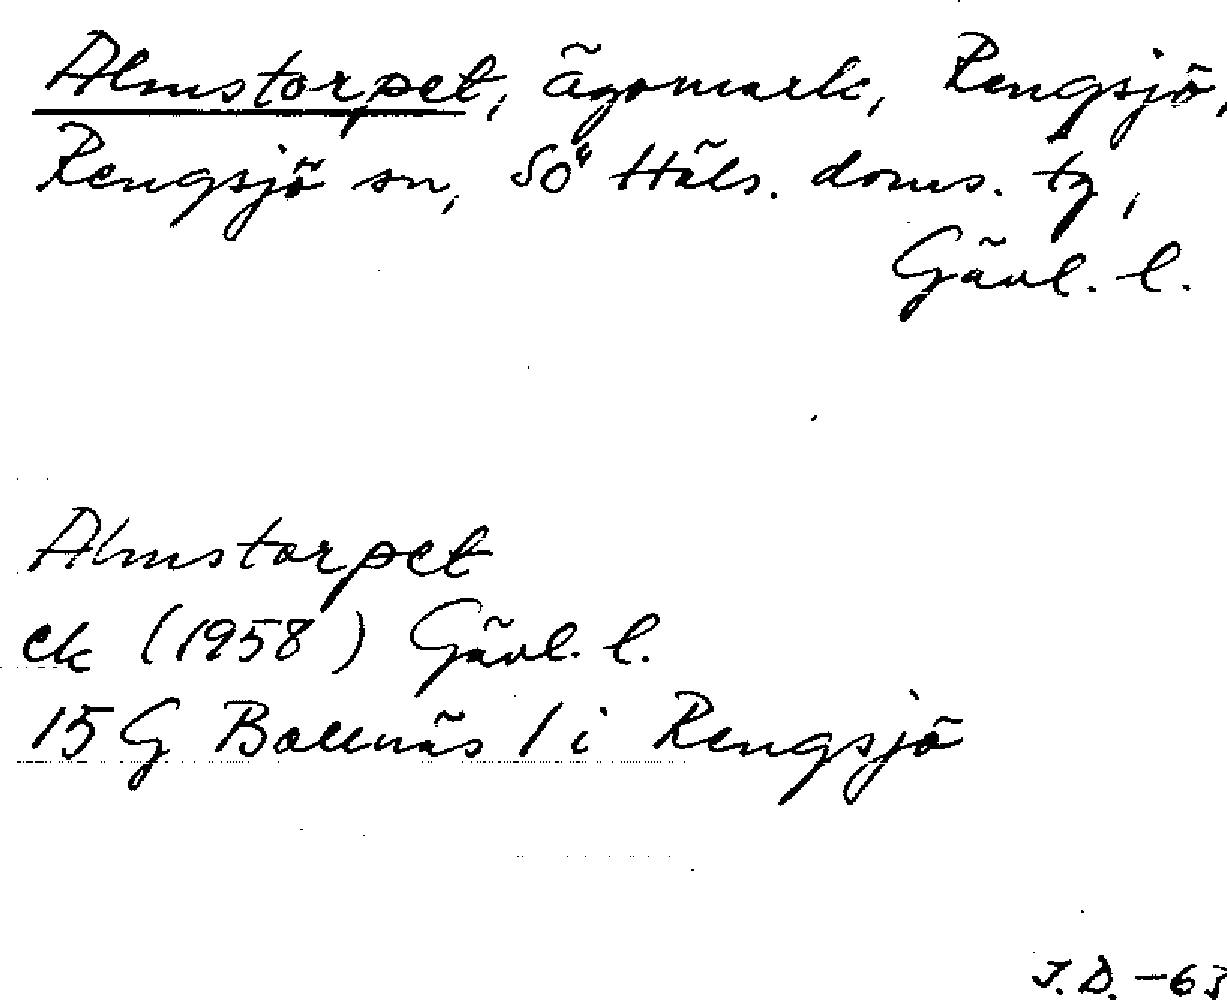 Almstorpet, ägomark, Rengsjö,
Rengsjö sn, SÖ Häls. doms. tg,
Gävl. l.
Almstorpet
ek (1958) Gävl. l.
15 G Bollnäs 1 i Rengsjö
J.D. -63